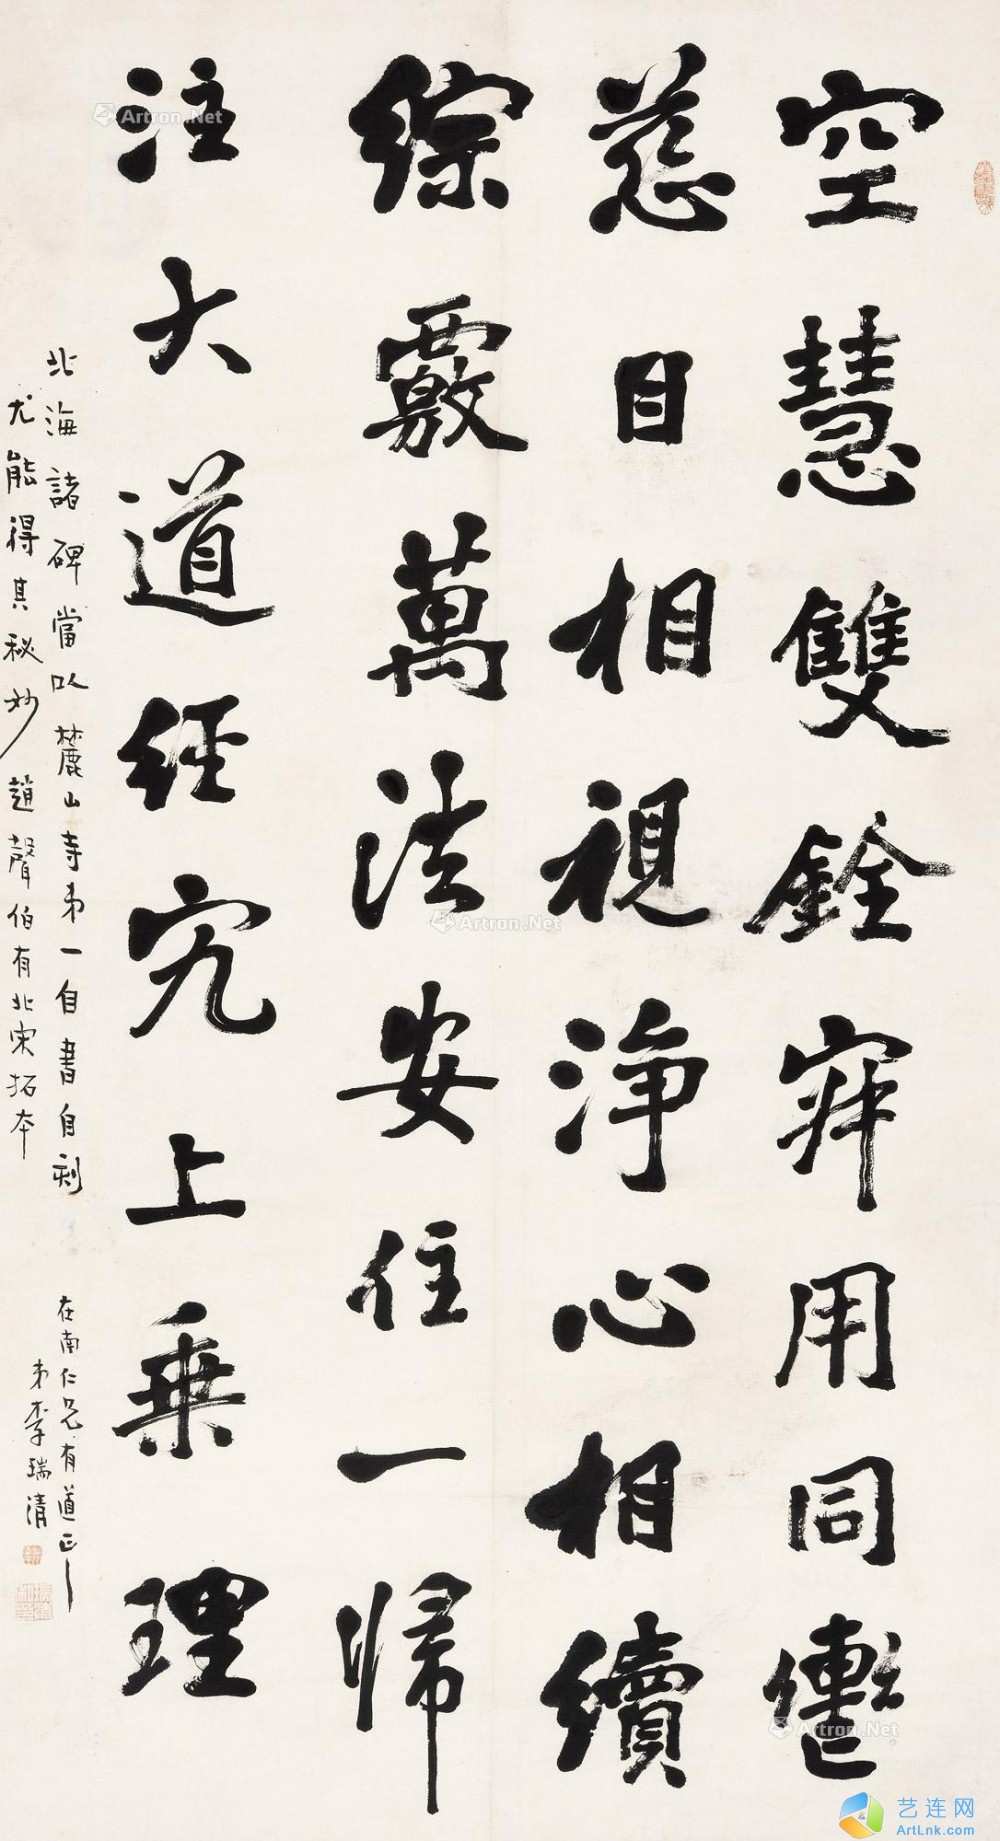 空慧雙銓寂用同
慈目相視淨心相續
綜覈萬法安住一歸
注大道經究上乘理
北海諸碑當以麓山寺弟一自書自刻
尤能得其秘妙趙聲伯有北宋拓本
在南仁兄有道正
弟李瑞清
Artron.Net
Artron.Net
Artron.Net
艺连网
ArtLnk.com